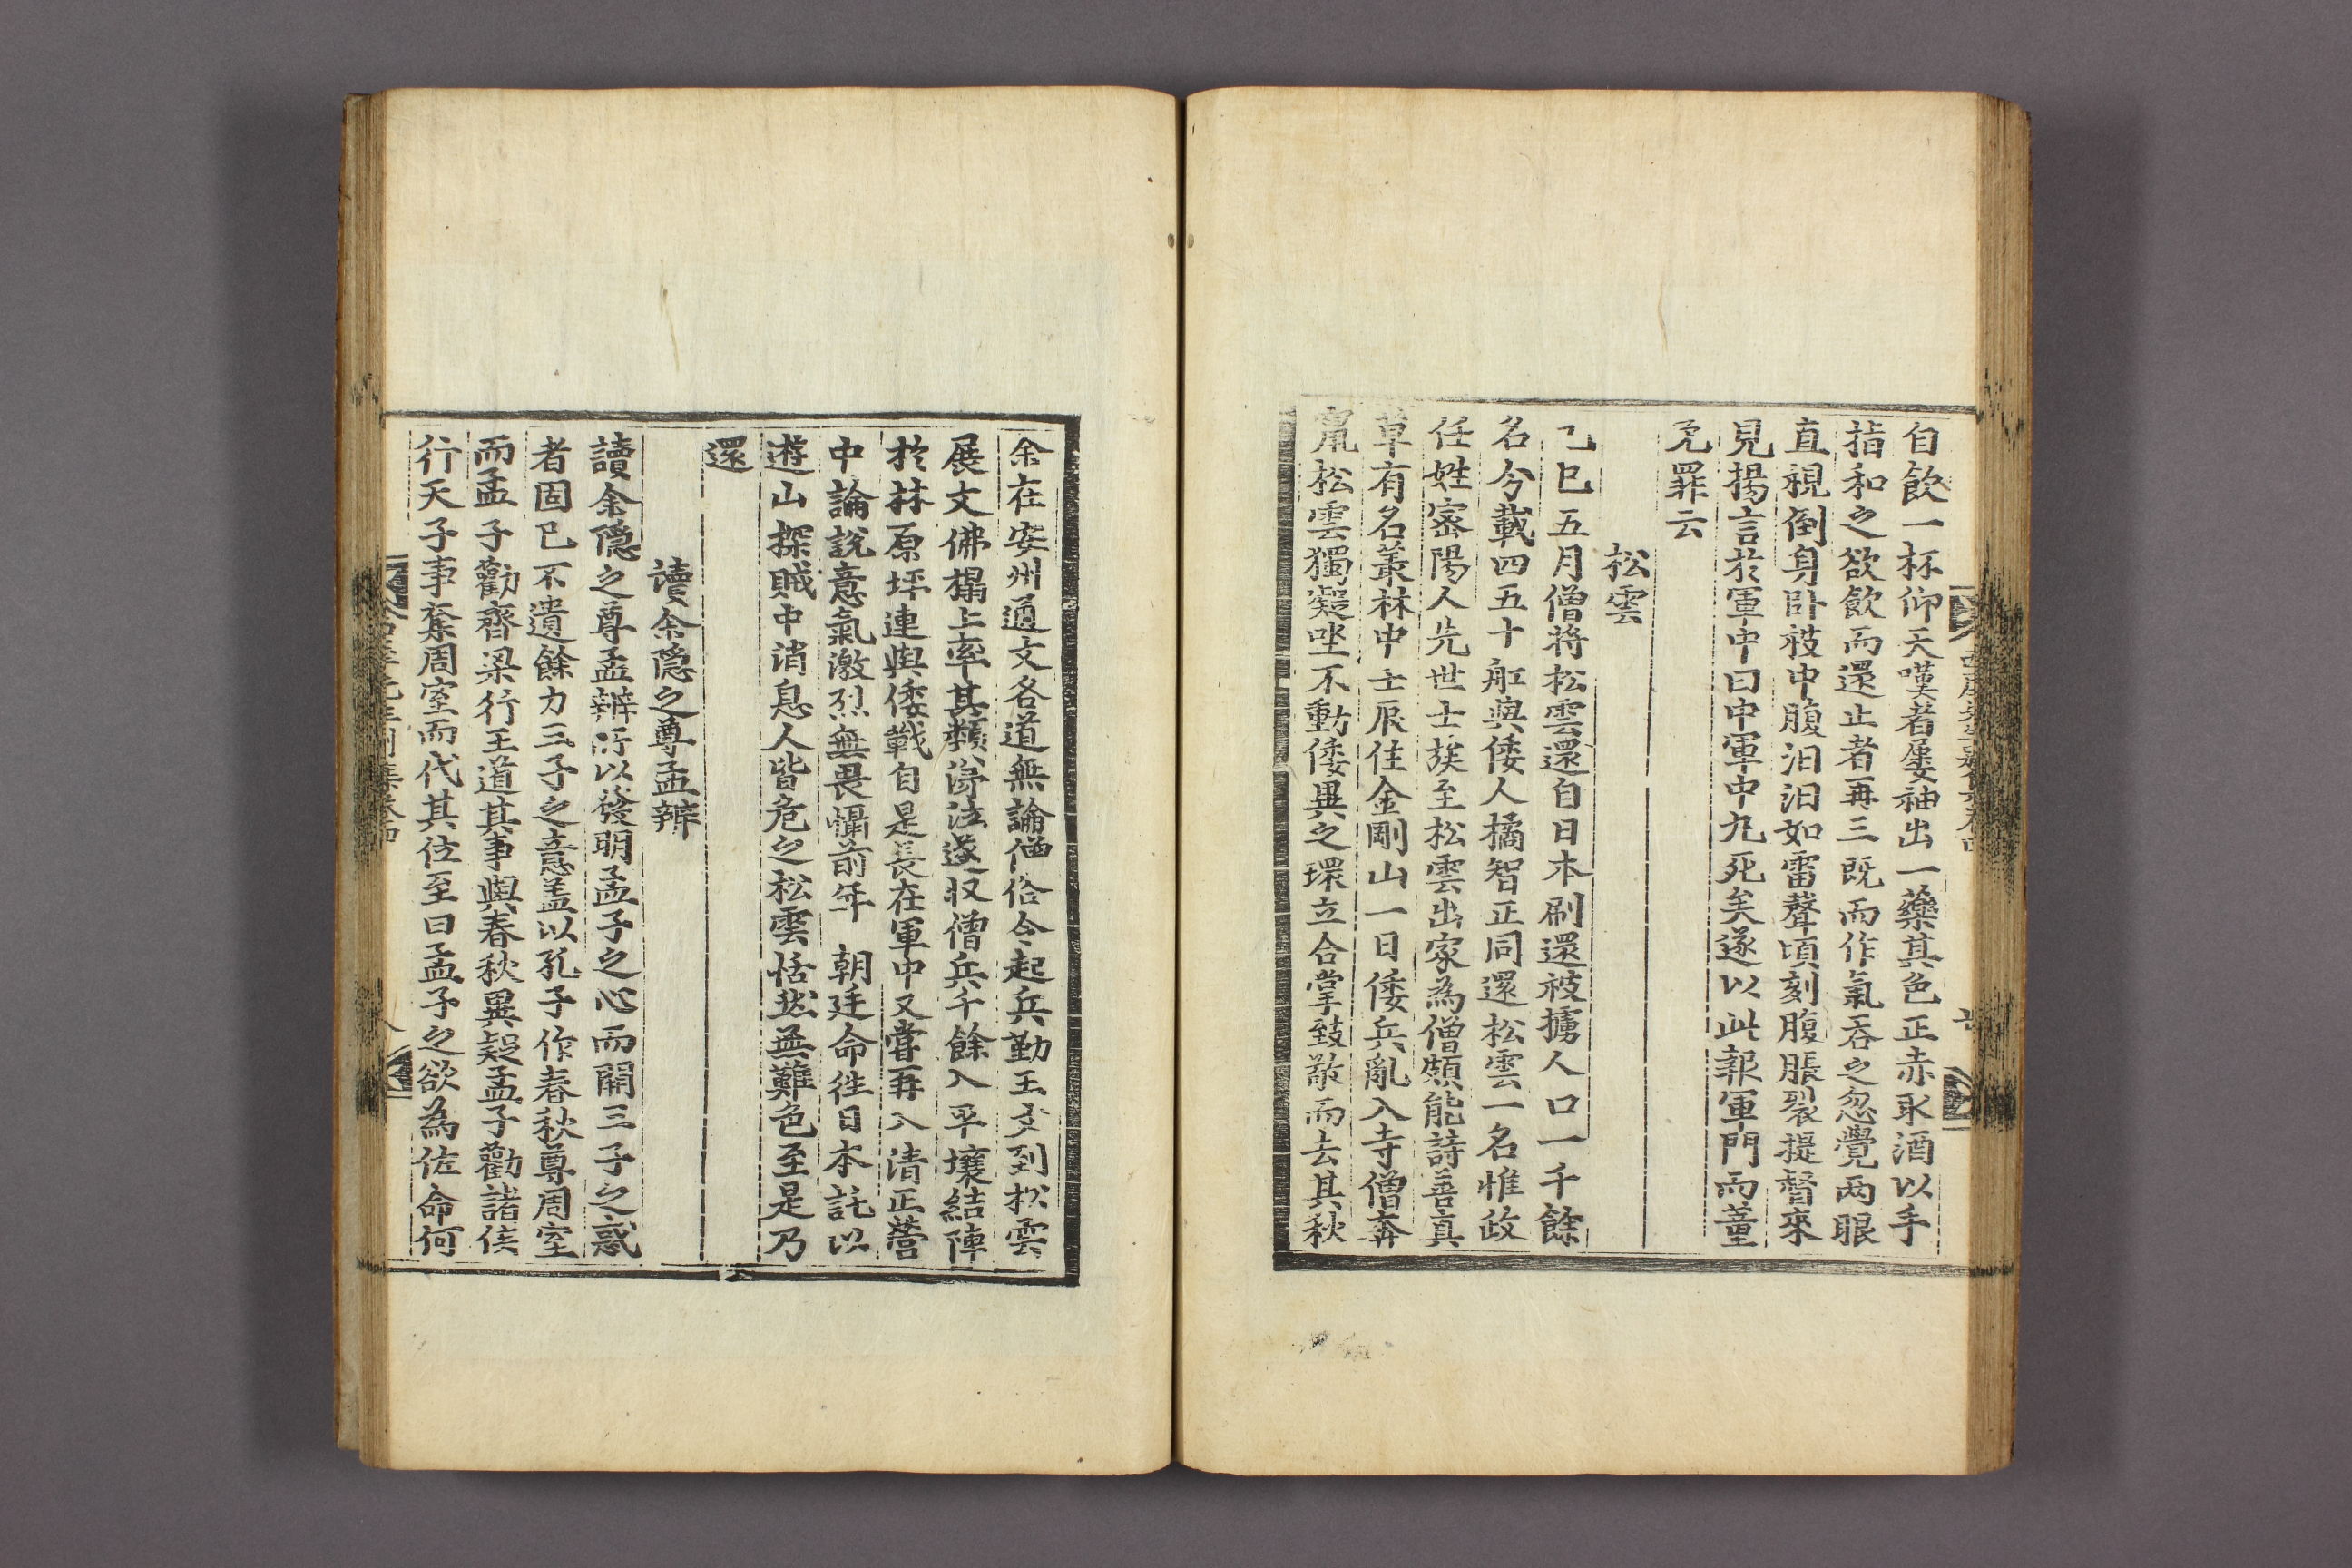 自飮一杯仰天嘆者屢袖出一藥其色正赤取酒以手
指和之欲飮而還止者再三旣而作氣呑之忽覺两眼
直視倒身卧被中腹汨汨如雷聲頃刻腹脹裂提督來
見揚言於軍中曰中軍中九死矣遂以此報軍門而董
免罪云
松雲
乙巳五月僧將松雲還自日本刷還被擄人口一千餘
名今載四五十舡與倭人橘智正同還松雲一名惟政
任姓密陽人先世士族至松雲出家為僧頗能詩善真
草有名叢林中壬辰住金剛山一日倭兵亂入寺僧奔
竄松雲獨凝坐不動倭異之環立合掌致敬而去其秋
余在安州通文各道無論僧俗令起兵勤王文到松雲
展文佛榻上率其類涕泣遂收僧兵千餘入平壤結陣
於林原坪連與倭戰自是長在軍中又嘗再入清正營
中論說意氣激烈無畏懾前年 朝廷命徃日本託以
遊山探賊中消息人皆危之松雲恬然無難色至是乃
還
讀余隱之尊孟辨
讀余隱之尊孟辨所以發明孟子之心而闢三子之惑
者固已不遺餘力三子之意盖以孔子作春秋尊周室
而孟子勸齊梁行王道其事與春秋異疑孟子勸諸侯
行天子事奪周室而代其位至曰孟子之欲為佐命何